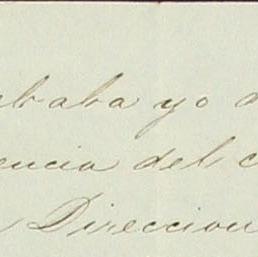 baba yo
encia del
Direccion